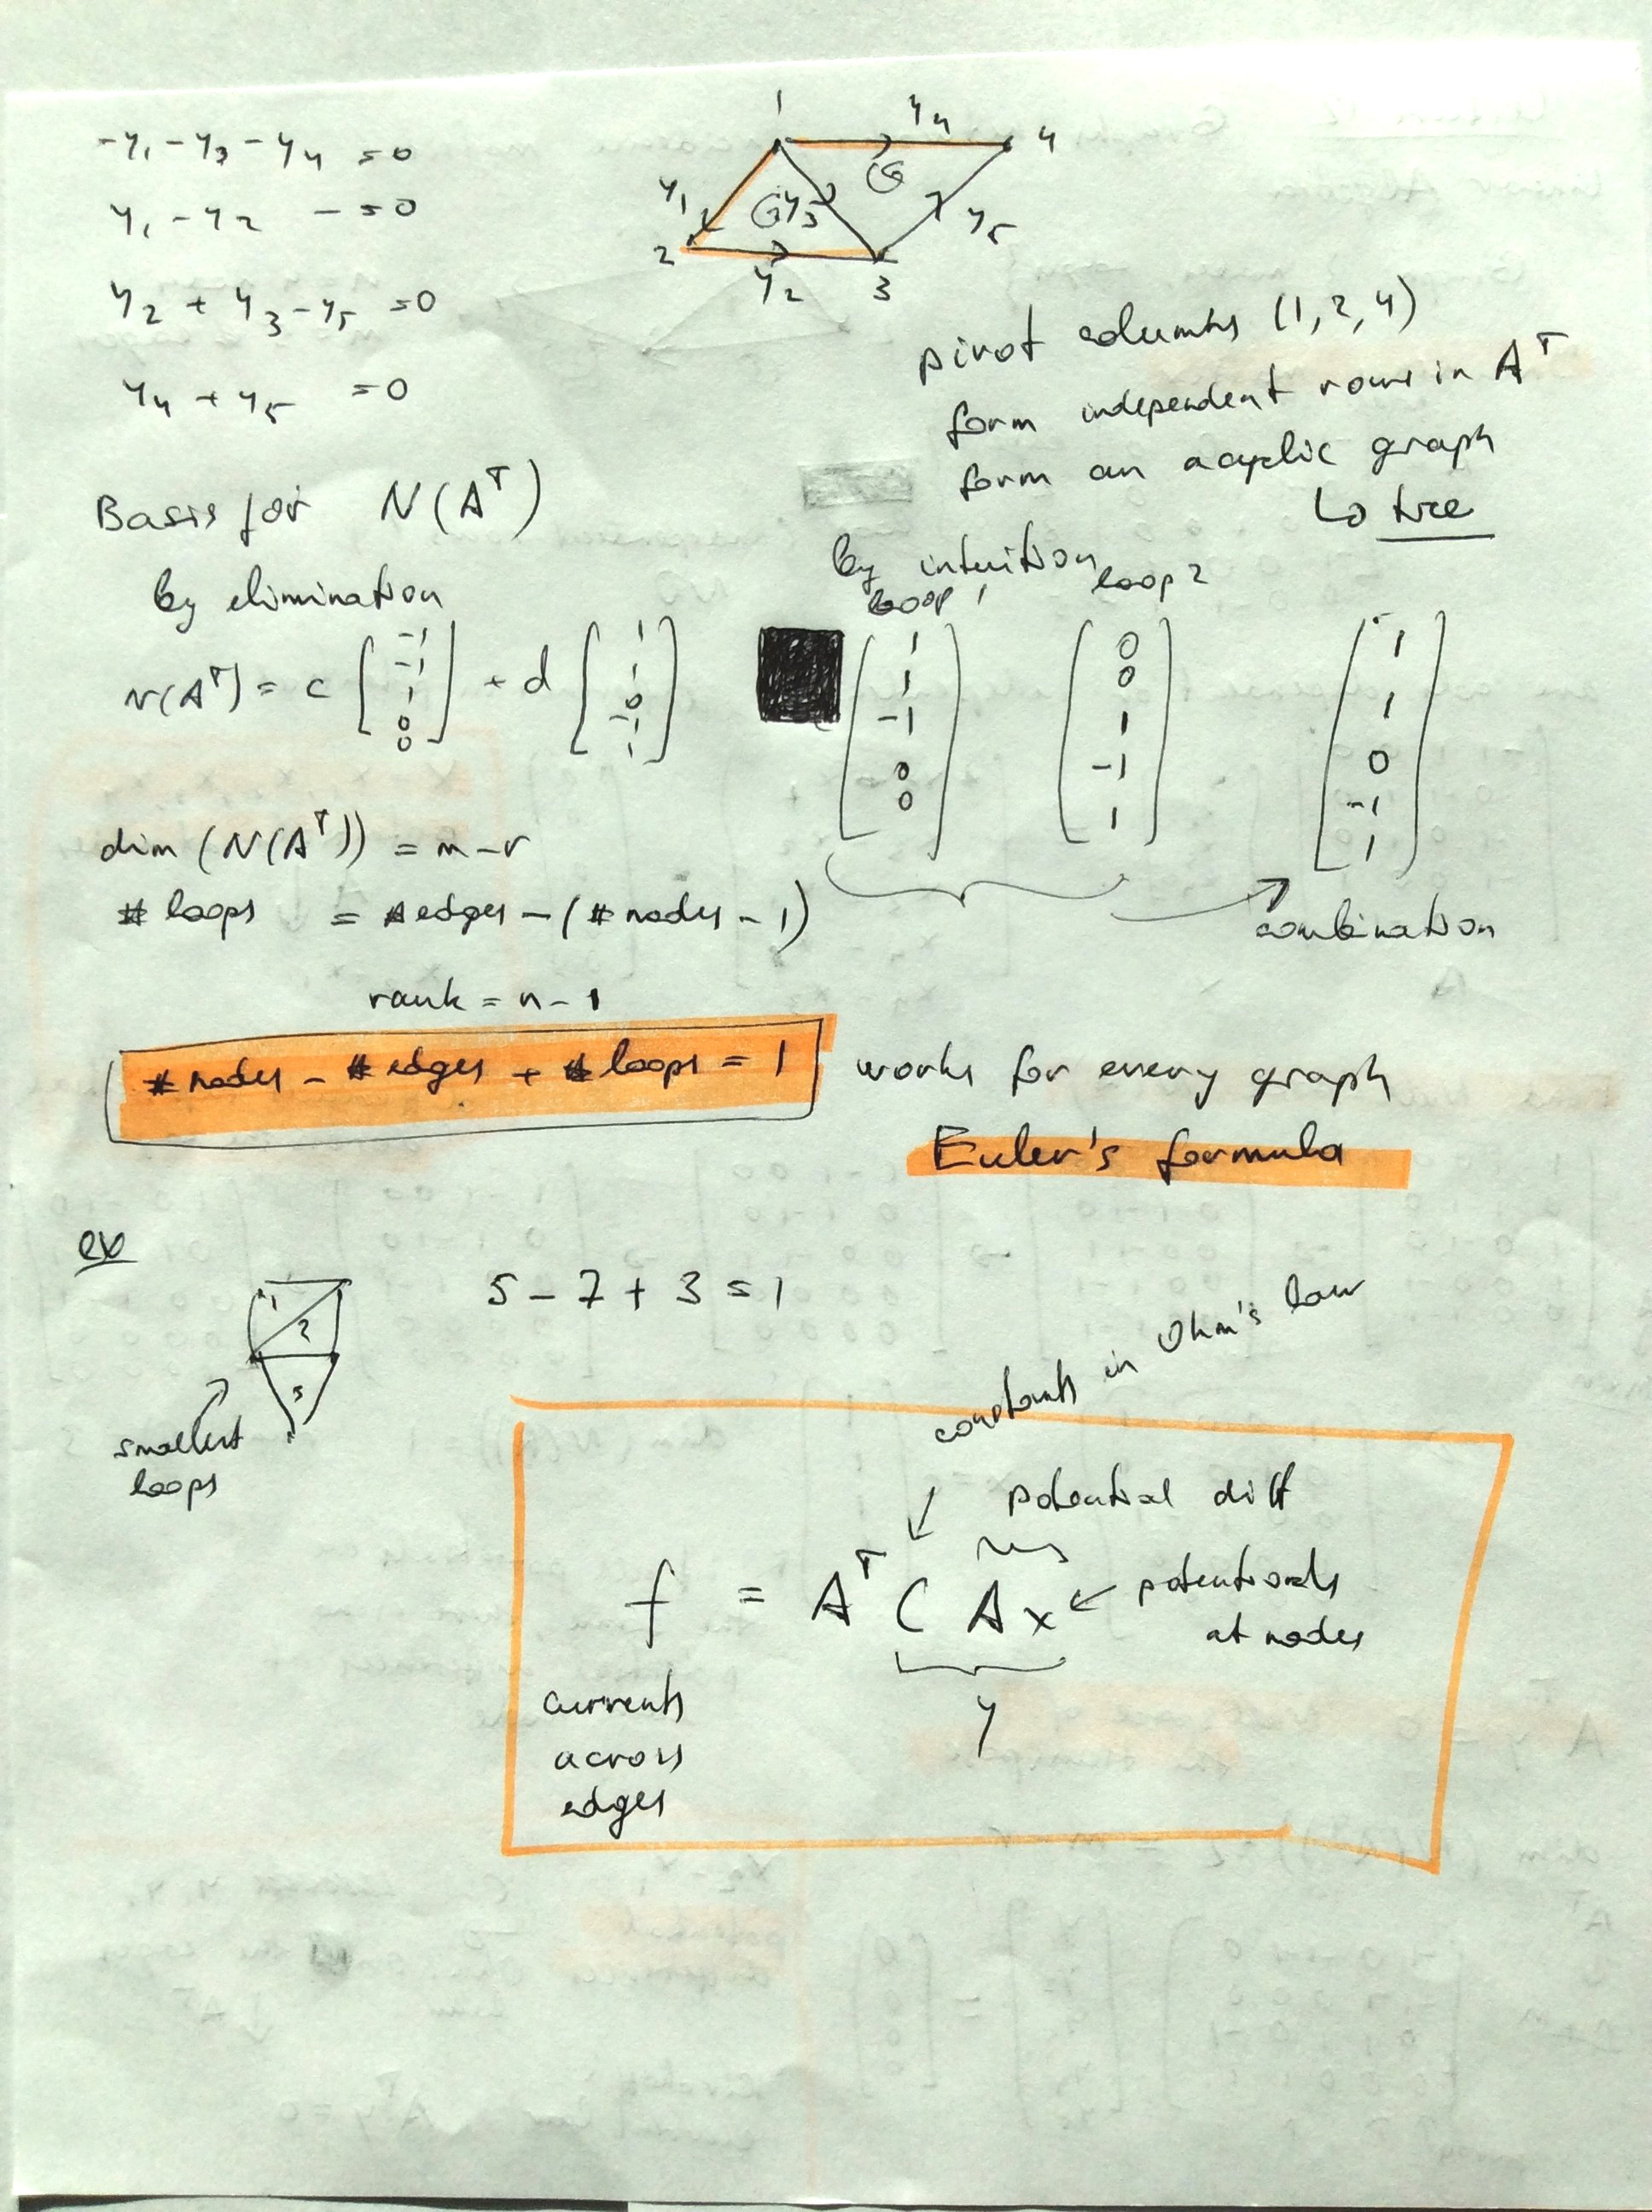 -y₁ - y₃ - y₄ = 0
y₁ - y₂ - = 0
y₂ + y₃ - y₅ = 0
y₄ + y₅ = 0
1 y₄ 4
y₁ y₃ y₅
2 y₂ 3
pivot columns (1, 2, 4)
form independent rows in Aᵀ
form an acyclic graph
↳ tree
Basis for N(Aᵀ)
by elimination
N(Aᵀ) = c [-1 -1 1 0 0] + d [1 1 0 -1 1]
by intuition
loop 1 loop 2
[1 1 -1 0 0] [0 0 1 -1 1] [1 1 0 -1 1]
combination
dim (N(Aᵀ)) = m - r
# loops = # edges - (# nodes - 1)
rank = n - 1
# nodes - # edges + # loops = 1 works for every graph
Euler's formula
ex
1
2
3
5 - 7 + 3 = 1
smallest
loops
constants in Ohm's law
potential diff
f = Aᵀ C A x ← potentials
at nodes
y
currents
across
edges